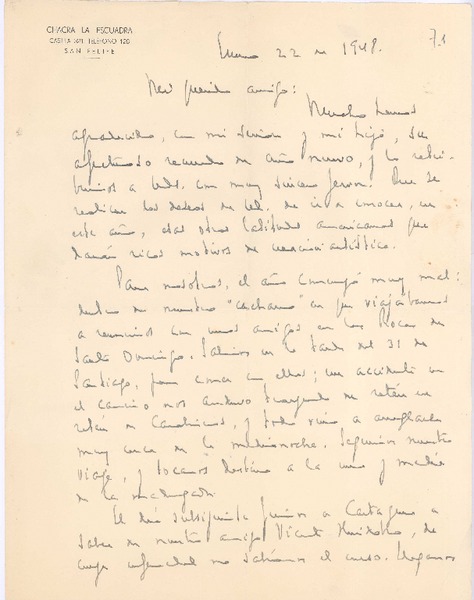 CHACRA LA ESCUADRA
CASILLA 341 TELEFONO 120
SAN FELIPE
7.1
Enero 22 de 1948.
Mi querido amigo:
Mucho hemos
agradecido, con mi señora y mi hijo, su
afectuoso recuerdo de año nuevo, y lo retri-
buimos a Uds. con muy sincero fervor. Que se
realicen los deseos de Ud. de ir a conocer, en
este año, esas otras latitudes americanas que
darán ricos motivos de creación artística.
Para nosotros, el año comenzó muy mal:
dentro de nuestro "cacharro" en que viajábamos
a reunirnos con unos amigos en las Rocas de
Santo Domingo. Salimos en la tarde del 31 de
Santiago, para comer con ellos; un accidente en
el camino nos detuvo en
retén de Carabineros, y todo vino a arreglarse
muy cerca de la medianoche. Seguimos nuestro
viaje, y tocamos destino a la una y media
de la madrugada.
El día subsiguiente fuimos a Cartagena a
saber de nuestro amigo Vicente Huidobro, de
cuya enfermedad no sabíamos el curso. Llegamos